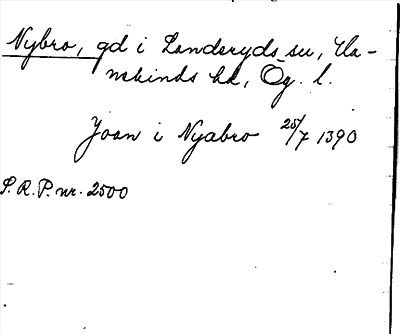 Nybro, gd i Landeryds sn, Ha-
nekinds hd, Ög. l.
Joan i Nyabro 25/7 1390
S.R.P. nr. 2500